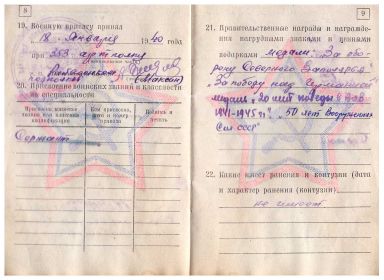 8
19. Военную присягу принял
18 января 1940 года
при 253 артполку
20. Присвоение воинских званий и классности
по специальности
Присвоено воинское звание или классная квалификация
Кем присвоено, дата и номер приказа
Подпись и печать
Сержант
9
21. Правительственные награды и награждения нагрудными знаками и ценными
подарками медали: "За оборону Советского Заполярья"
"За победу над Германией"
медаль "20 лет победы в ВОВ
1941-1945 гг" "50 лет Вооруженных
Сил СССР"
22. Какие имеет ранения и контузии (дата
и характер ранения (контузии)
не имеет